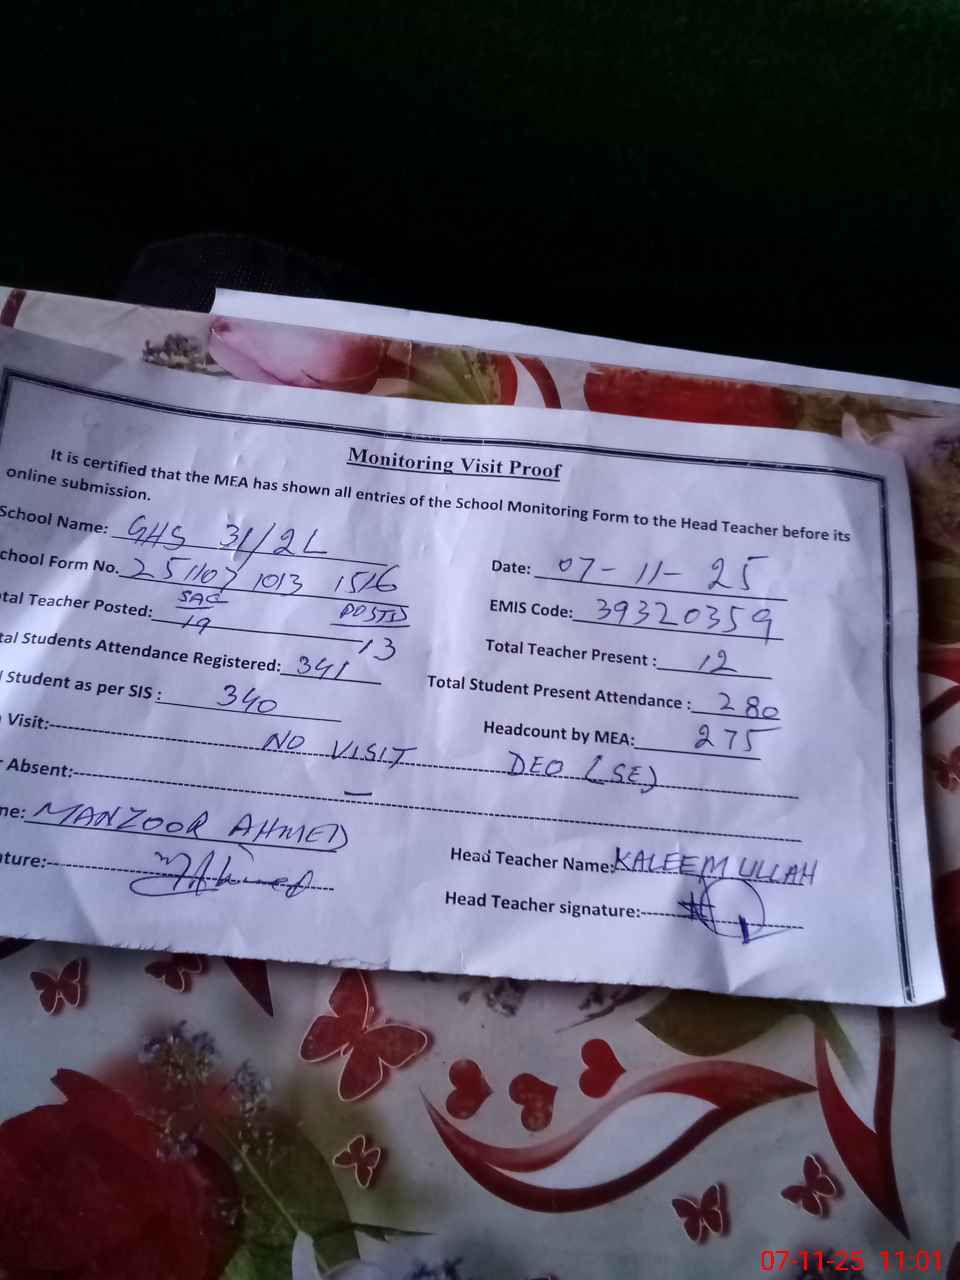 Monitoring Visit Proof
It is certified that the MEA has shown all entries of the School Monitoring Form to the Head Teacher before its
online submission.
School Name: GHS 31/2L
Date: 07-11-25
chool Form No. 251107 1013 1516
EMIS Code: 39320359
tal Teacher Posted: SAC 19 POSTED 13
Total Teacher Present : 12
tal Students Attendance Registered: 341
Total Student Present Attendance : 280
l Student as per SIS : 340
Headcount by MEA: 275
Visit: NO VISIT DEO (SE)
r Absent: —
me: MANZOOR AHMED
Head Teacher Name: KALEEM ULLAH
ature: MAhmed
Head Teacher signature:
07-11-25 11:01